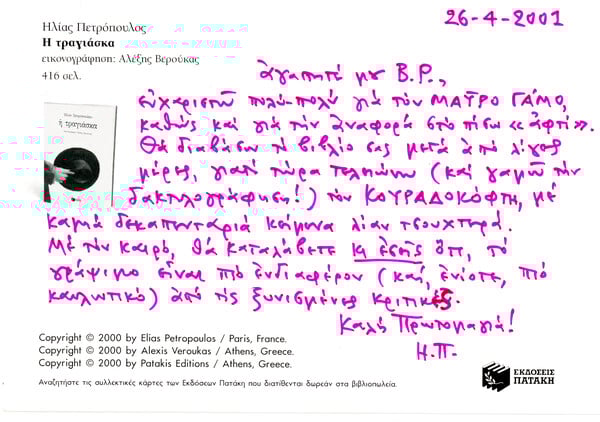 Ηλίας Πετρόπουλος
Η τραγιάσκα
εικονογράφηση: Αλέξης Βερούκας
416 σελ.
26-4-2001
ἀγαπητέ μου Β.Ρ.,
εὐχαριστῶ πολύ-πολύ γιά τόν ΜΑΥΡΟ ΓΑΜΟ,
καθώς καί γιά τήν ἀναφορά στό πίσω «ἀφτί».
Θά διαβάσω τό βιβλίο σας μετά ἀπό λίγες
μέρες, γιατί τώρα τελειώνω (καί γαμῶ τήν
δακτυλογράφηση!) τόν ΚΟΥΡΑΔΟΚΟΦΤΗ, μέ
καμιά δεκαπενταριά κείμενα λίαν τσουχτερά.
Μέ τόν καιρό, θά καταλάβετε κι ἐσεῖς ὅτι, τό
γράψιμο εἶναι πιό ἐνδιαφέρον (καί, ἐνίοτε, πιό
καυλωτικό) ἀπό τίς ξυνισμένες κριτικές.
Καλή Πρωτομαγιά!
Η.Π.
ἡ τραγιάσκα
Copyright © 2000 by Elias Petropoulos / Paris, France.
Copyright © 2000 by Alexis Veroukas / Athens, Greece.
Copyright © 2000 by Patakis Editions / Athens, Greece.
Αναζητήστε τις συλλεκτικές κάρτες των Εκδόσεων Πατάκη που διατίθενται δωρεάν στα βιβλιοπωλεία.
ΕΚΔΟΣΕΙΣ
ΠΑΤΑΚΗ